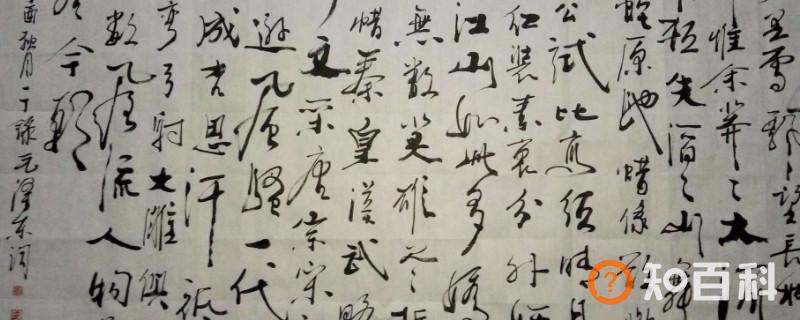 里雪飘望长城
惟余莽莽大河
顿失滔滔山舞
原驰蜡象欲
公试比高须晴日
红装素裹分外
江山如此多娇
无数英雄竞折
惜秦皇汉武略
文采唐宗宋
逊风骚一代
成吉思汗只
弯弓射大雕俱
数风流人物
今朝
酉秋月于录毛泽东词
知百科